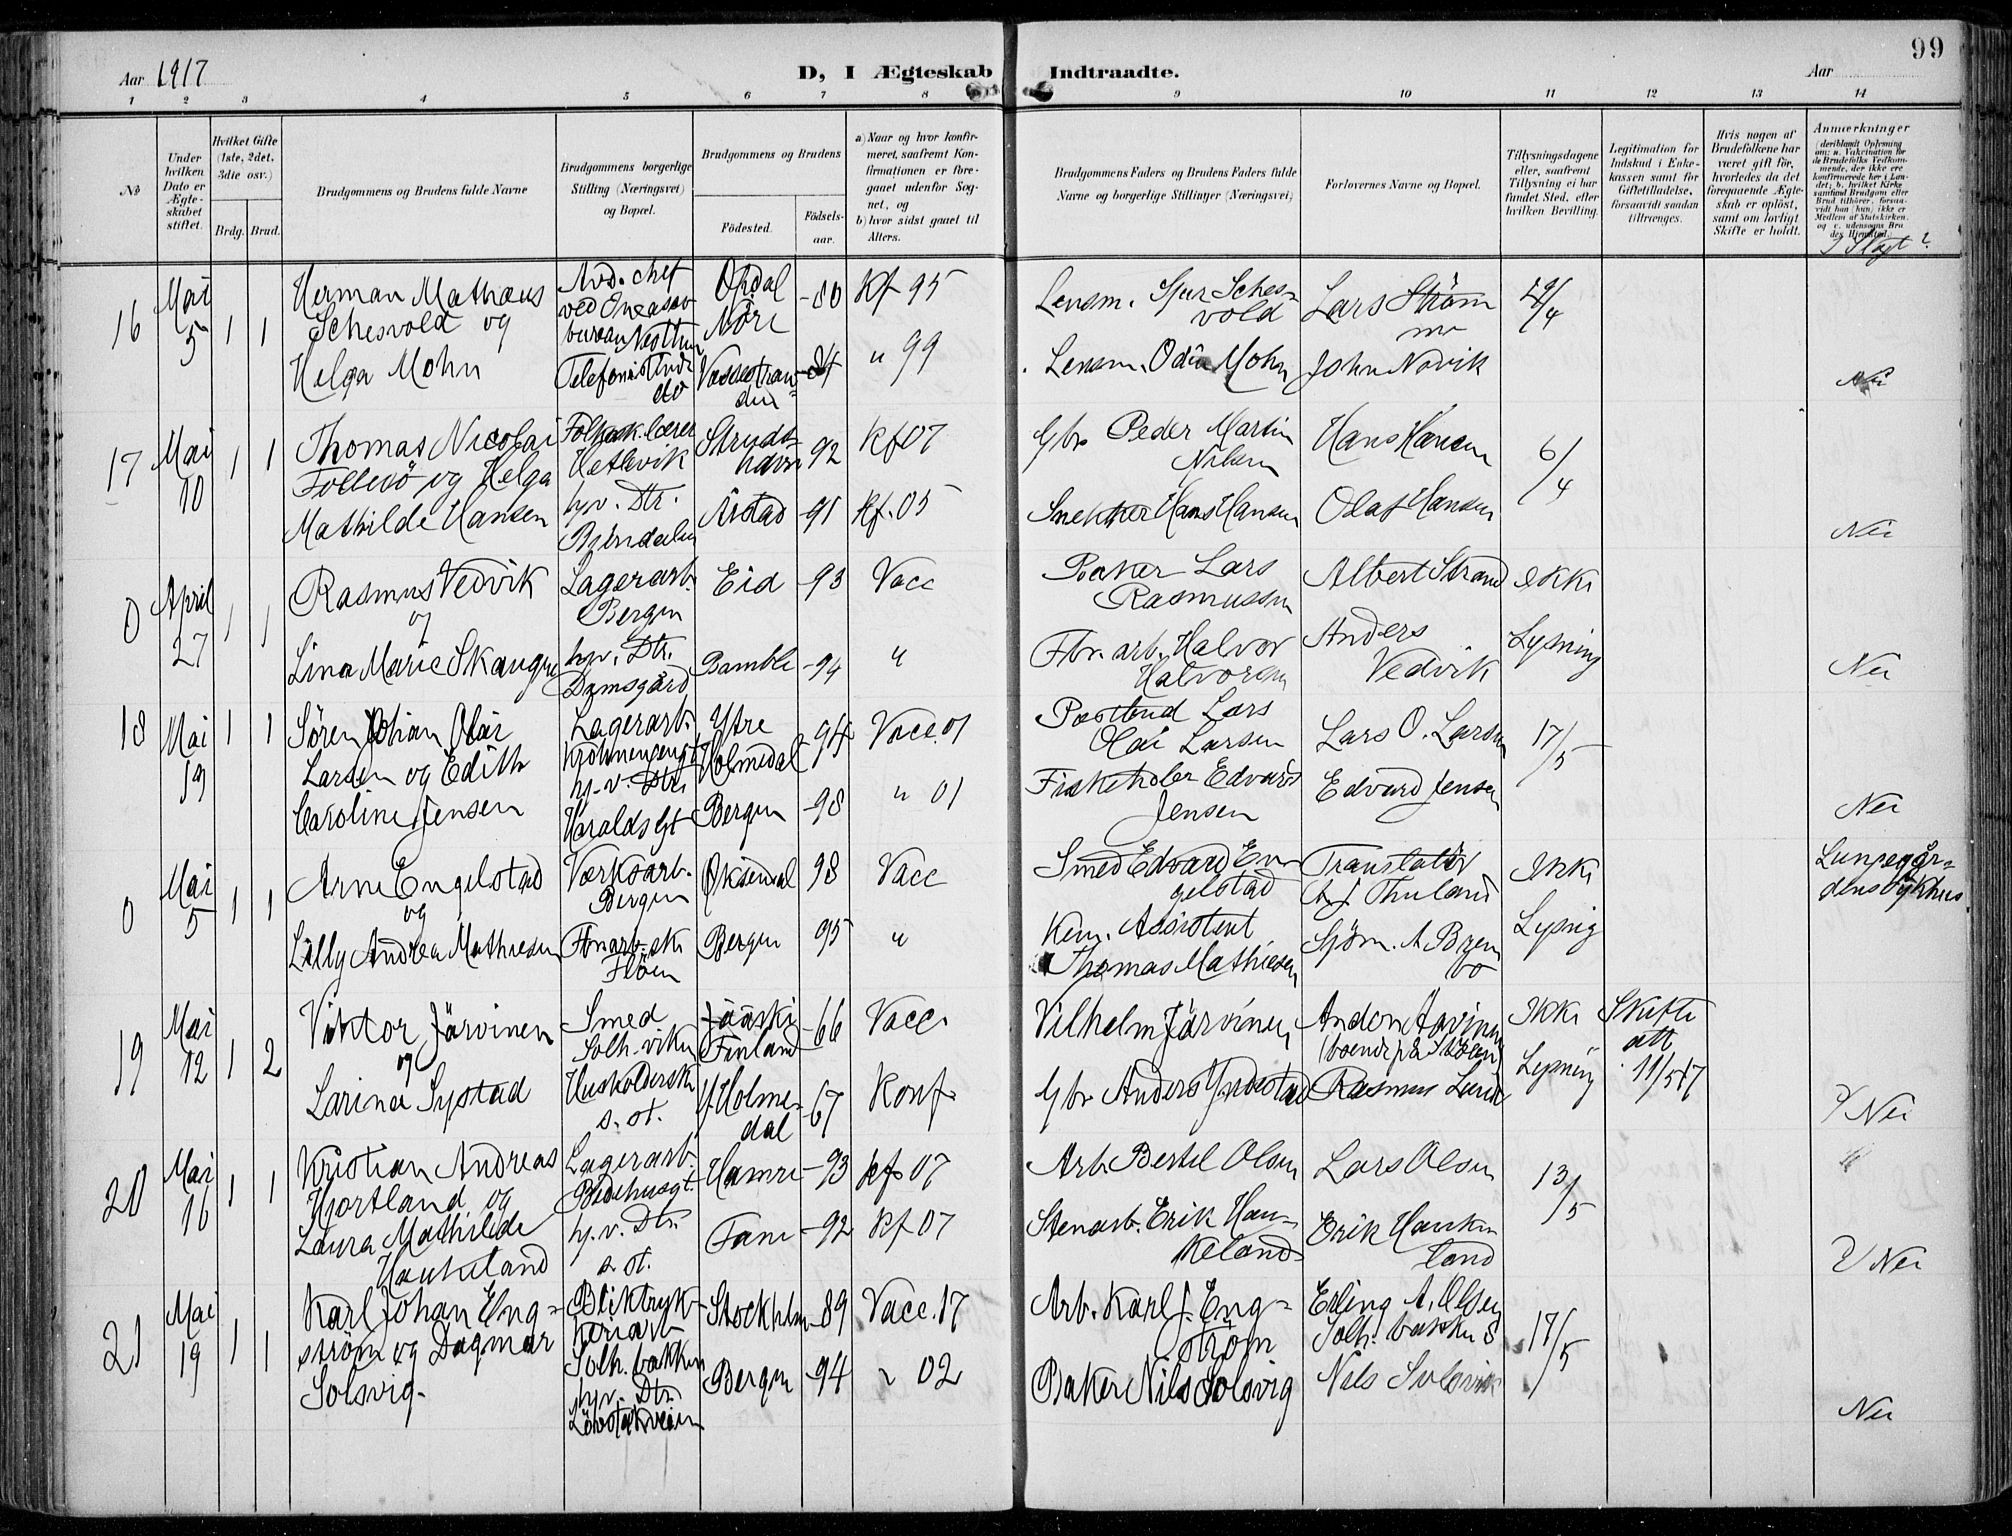 99
Aar 1917
D, I Ægteskab Indtraadte.
Aar
1 2 3 4 5 6 7 8 9 10 11 12 13 14
No
Under hvilken Dato er Ægteskabet stiftet.
Hvilket Gifte (1ste, 2det, 3die osv.)
Brdg. Brud.
Brudgommens og Brudens fulde Navne
Brudgommens borgerlige Stilling (Næringsvei) og Bopæl.
Brudgommens og Brudens
Fødested.
Fødselsaar.
a) Naar og hvor konfirmeret, saafremt Konfirmationen er foregaaet udenfor Sognet, og
b) hvor sidst gaaet til Alters.
Brudgommens Faders og Brudens Faders fulde Navne og borgerlige Stillinger (Næringsvei)
Forlovernes Navne og Bopæl.
Tillysningsdagene eller, saafremt Tillysning ei har fundet Sted, efter hvilken Bevilling.
Legitimation for Indskud i Enkekassen samt for Giftetilladelse, forsaavidt saadan tiltrænges.
Hvis nogen af Brudefolkene har været gift før, hvorledes da det foregaaende Ægteskab er opløst, samt om lovligt Skifte er holdt.
Anmærkninger
I Slægt?
16 Mai 5 1 1
Herman Mathæus
Schesvold og
Helga Mohn
Opdal
Nöre
-80 Kf 95
Telefonistinde
do
Vossestranden
-84 " 99
Lensm. Schesvold
Lars Strömme
29/4
Lensm. Odin Mohn
John Nøvik
Nei
17 Mai 10 1 1
Thomas Nicolai
Follesö og Helga
Mathilde Hansen
Folkesk.lærer
Hetlevik
hjv. Dtr.
92 Kf 07
Årstad -91 Kf. 05
Gbr Peder Martin
Nilsen
Hans Hansen
6/4
Snekker Hans Hansen
Olaf Hansen
Nei
0 April 27 1 1
Rasmus Vedvik
og
Lina Marie Skaugen
Lagerarb.
Bergen
hjv. Dtr.
Damsgård
Eid -93 Vacc
Bamble -94 "
Baker Lars
Rasmussen
Albert Strand
Ikke
Lysning
Fbr. arb. Halvor
Halvorsen
Anders
Vedvik
Nei
18 Mai 19 1 1
Sören Johan Olai
Larsen og Edith
Caroline Jensen
Lagerarb.
hj.v. Dtr.
Haralds Gt
Ytre
Holmedal
-94 Vacc. 01
Bergen -98 " 01
Postbud Lars
Olai Larsen
Lars O. Larsen
17/5
Fiskehdler Edvard
Jensen
Edvard Jensen
Nei
0 Mai 5 1 1
Arne Engelstad
og
Lilly Andrea Mathiesen
Værksarb.
Bergen
Öksendal 98 Vacc
Fbrarb.ske
Flöen
Bergen 95 "
Smed Edvard Engelstad
Translatör
A J Thuland
Ikke
Lysnig
Kem. Assistent
Thomas Mathiesen
Sjöm. A Bren
Lungegårdens sykhus.
19 Mai 12 1 2
Viktor Järvinen
og
Larine Systad
Smed
Solh.viken
Husholderske
s. st.
Jääski
Finland
-66 Vacc.
Y. Holmedal
-67 Konf.
Vilhelm Järvinen
Ikke
Lysning
Skifte
att
11/5 17
Gbr Anders
Rasmus Lund
Nei
20 Mai 16 1 1
Kristian Andreas
Hjortland og
Laura Mathilde
Haukeland
Lagerarb.
Bedehusgt.
hj.v. Dtr.
s. st.
Hamre -93 kf 07
Fane -92 Kf 07
Arb. Bertel Olsen
Lars Olsen
13/5
Stenarb. Erik Haukeland
Erik Haukeland
Nei
21 Mai 19 1 1
Karl Johan Engström og Dagmar
Solsvig.
Bliktrykkeriarb
Solh. bakken
hjv. Dtr.
Lövstakveien
Stockholm -89 Vacc. 17
Bergen -94 " 02
Arb. Karl J. Engström
Erling A. Olsen
Solh. bakken 8
17/5
Baker Nils Solsvig
Nils Solsvik
Nei